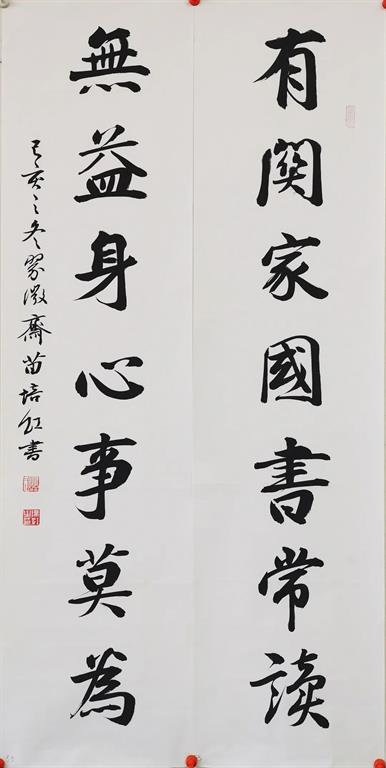 有關家國書常讀
無益身心事莫為
己亥之冬翠微齋苗培红書